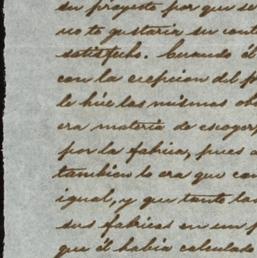 su proyecto por que se
no te gustaria su cont
satisfecho. Cuando él
con la ecepcion del p
le hice las mismas obs
era materia de escoger
por la fabrica, pues a
tambien lo era que con
igual, y que tanto la
sus fabricas en un p
que él habia calculado